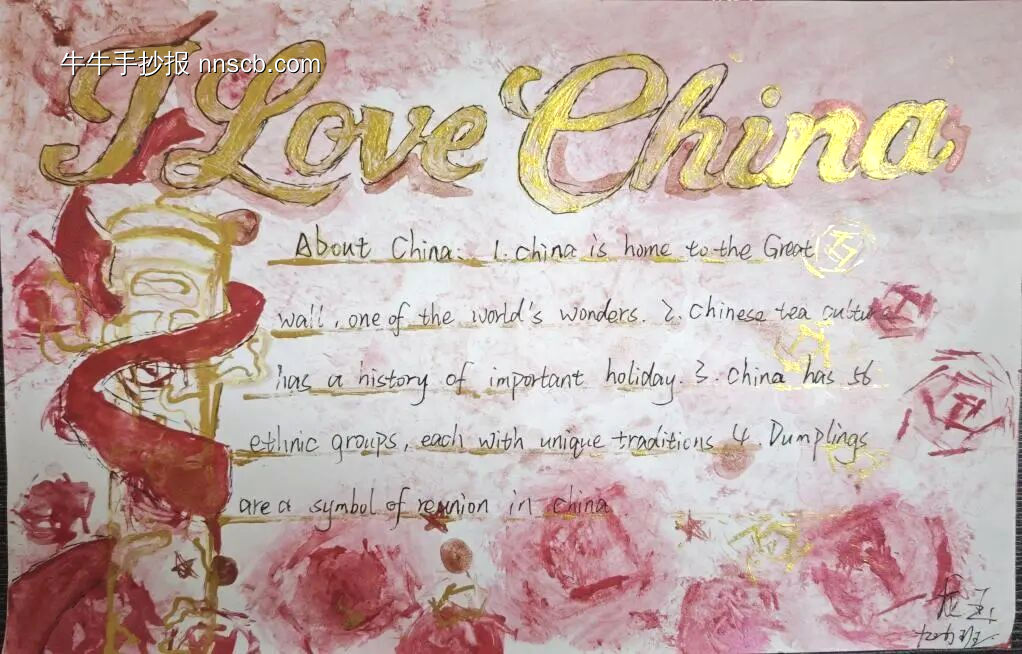 牛牛手抄报 nnscb.com
I Love China
About China: 1. China is home to the Great
wall, one of the world's wonders. 2. Chinese tea culture
has a history of important holiday. 3. China has 56
ethnic groups, each with unique traditions 4. Dumplings
are a symbol of reunion in china